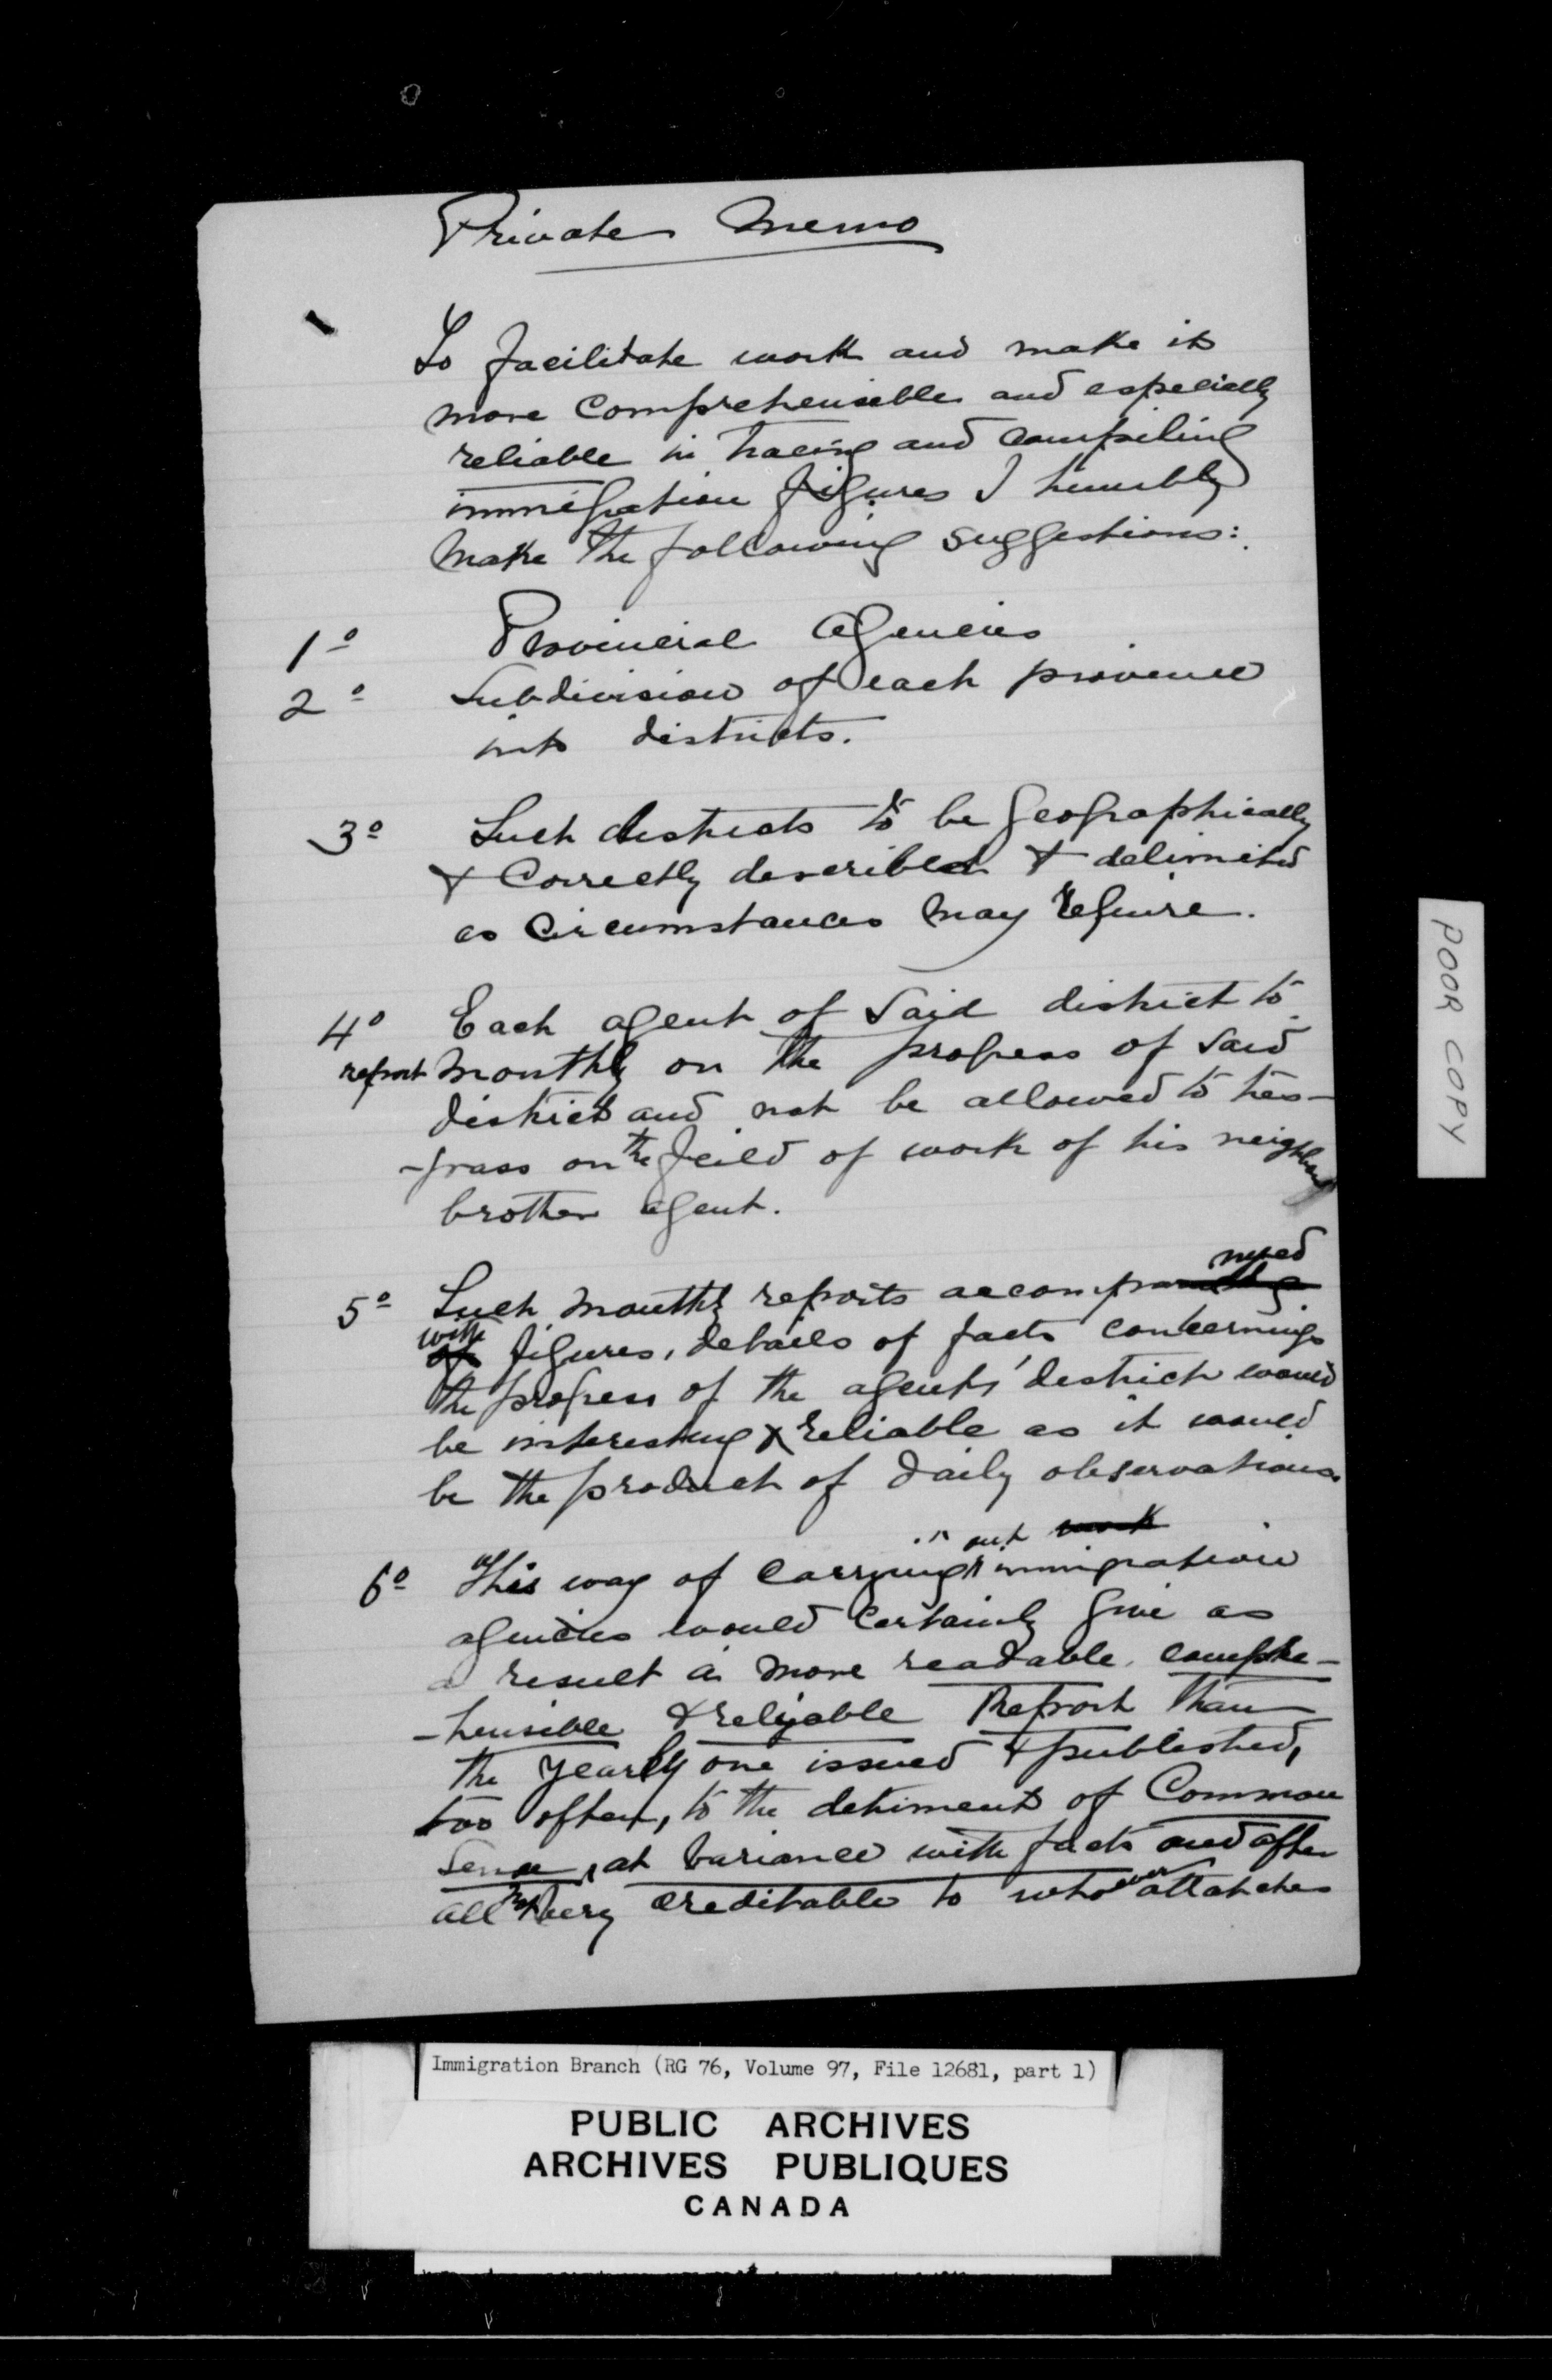 Private Memo
To facilitate work and make it
more comprehensible and especially
reliable in tracing and compiling
immigration figures I humbly
make the following suggestions:
1º Provincial Agencies
2º Subdivision of each province
into districts.
3º Such districts to be geographically
& correctly described & delimited
as circumstances may require.
4º Each agent of said district to
report monthly on the progress of said
district and not be allowed to tres-
-pass on the feild of work of his neighbour
brother agent.
5º Such monthly reports accompanyed
with figures, details of facts concerning
the progress of the agents' district would
be interesting & reliable as it would
be the product of daily observations.
6º This way of carrying out work immigration
agencies would certainly give as
a result a more readable, compre-
-hensible & relyable Report than
the yearly one issued & published,
too often, to the detriment of Common
Sense, at variance with facts and after
all not very creditable to whoever attatches
POOR COPY
Immigration Branch (RG 76, Volume 97, File 12681, part 1)
PUBLIC ARCHIVES
ARCHIVES PUBLIQUES
CANADA